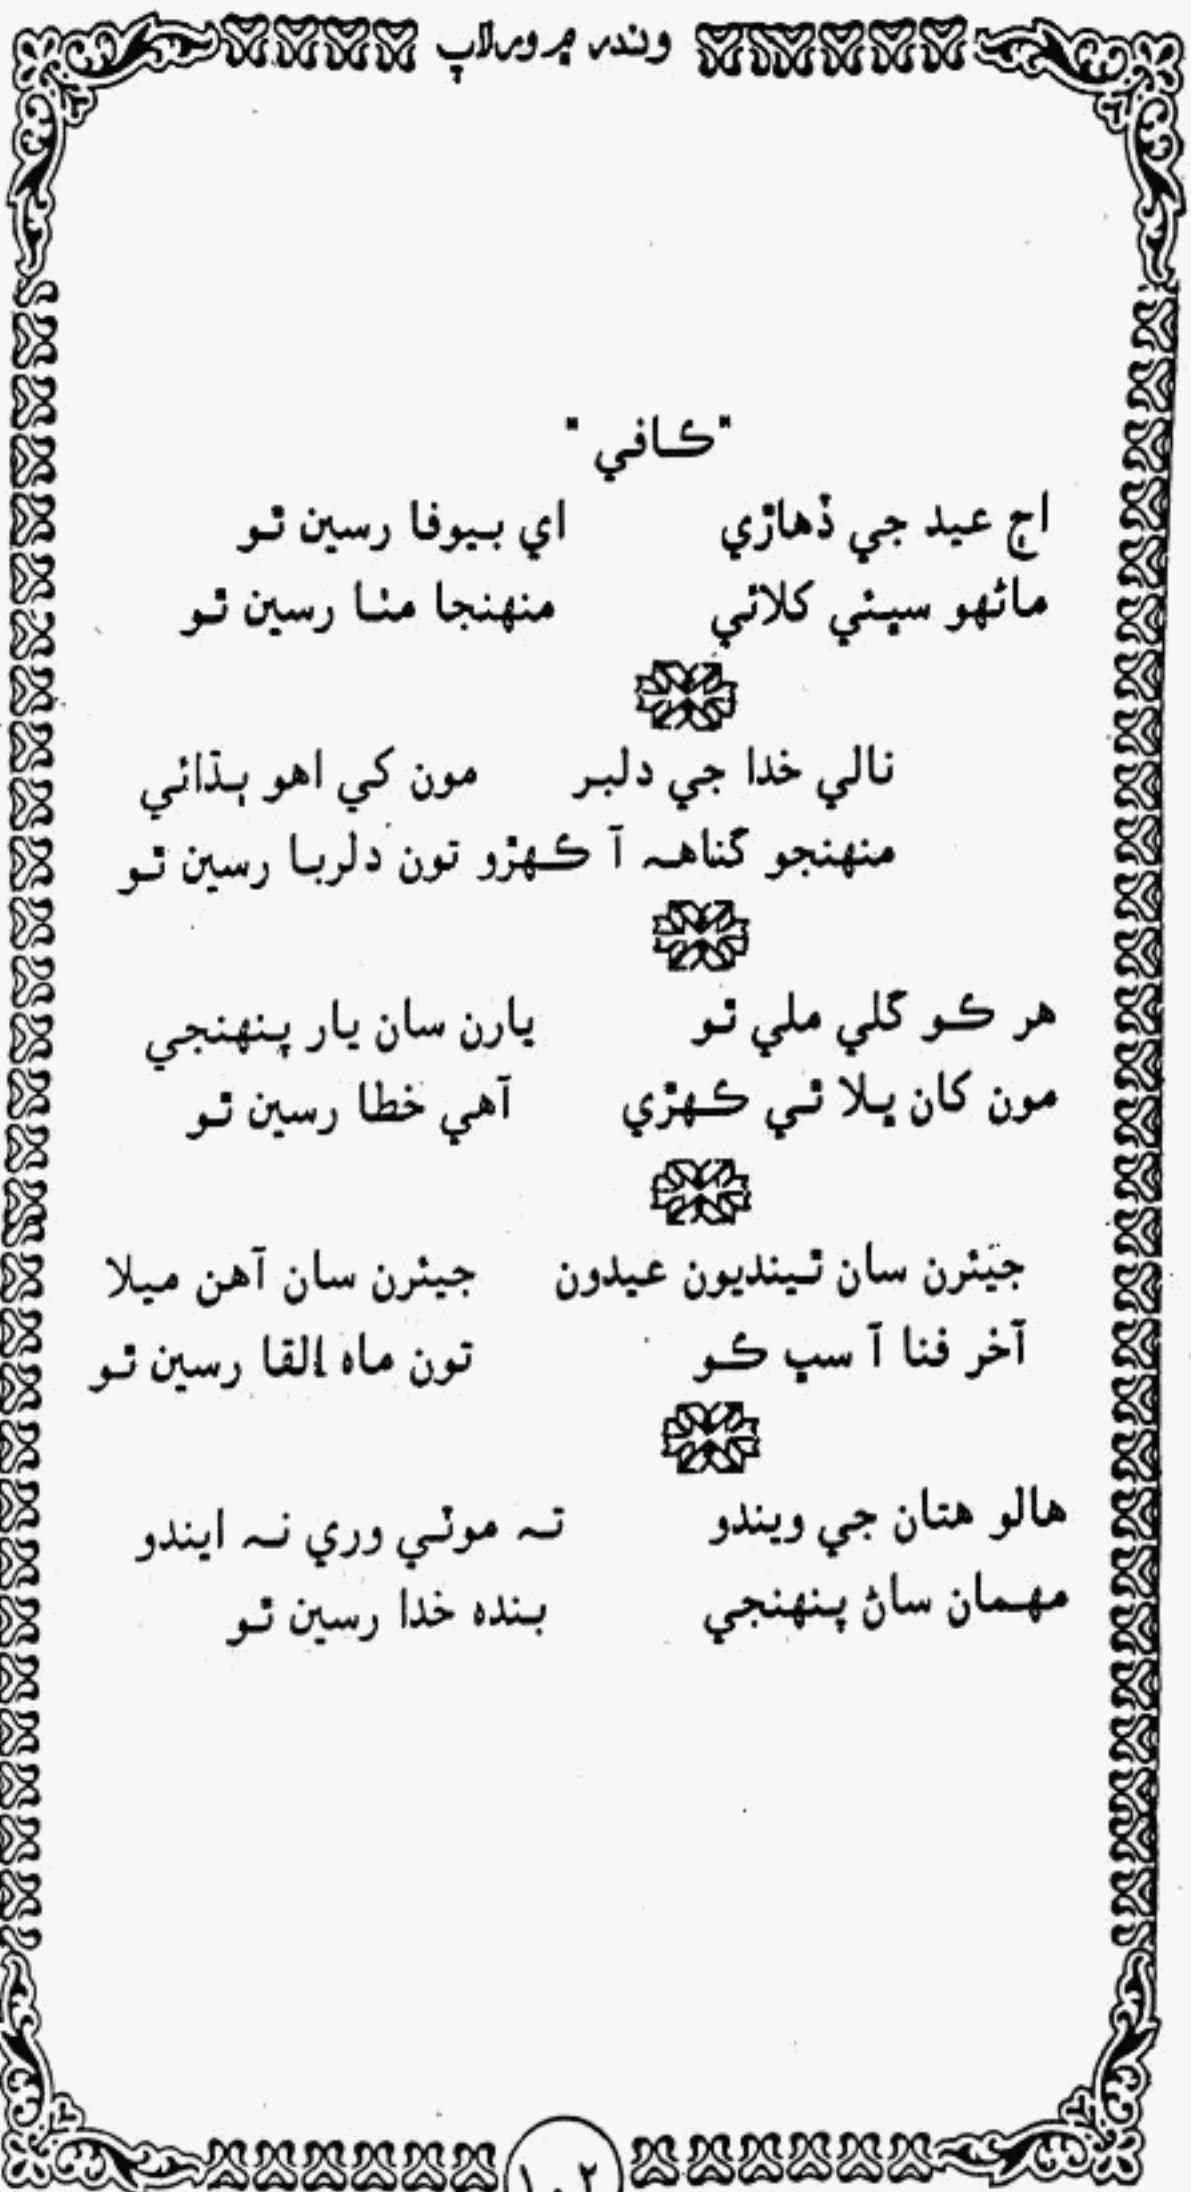 وندر ۾ ورلاپ
"ڪافي"
اڄ عيد جي ڏهاڙي اي بيوفا رسين ٿو
ماڻهو سڀئي کلائي منهنجا مٺا رسين ٿو
نالي خدا جي دلبر مون کي اهو ٻڌائي
منهنجو گناهہ آ ڪهڙو تون دلربا رسين ٿو
هر ڪو گلي ملي ٿو يارن سان يار پنهنجي
مون کان ڀلا ٿي ڪهڙي آهي خطا رسين ٿو
جيئرن سان ٿينديون عيدون جيئرن سان آهن ميلا
آخر فنا آ سڀ ڪو تون ماه القا رسين ٿو
هالو هتان جي ويندو تہ موٽي وري نہ ايندو
مهمان ساڻ پنهنجي بنده خدا رسين ٿو
١٠٢